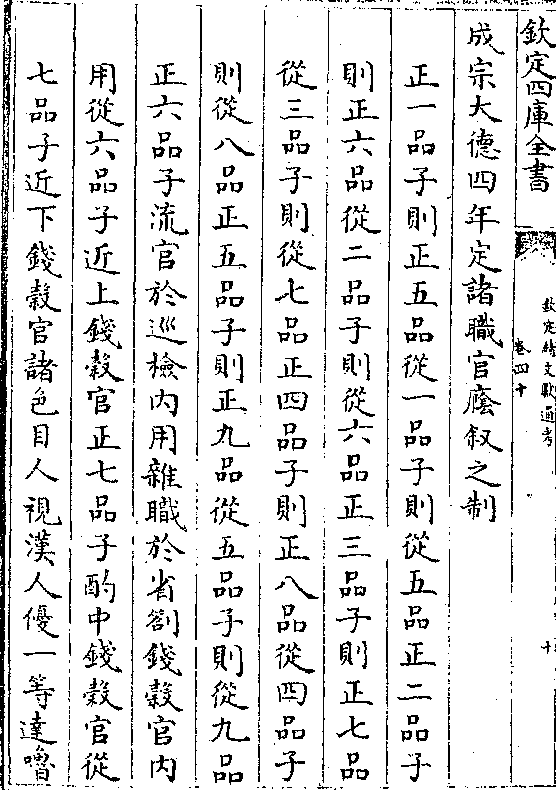 欽定四庫全書
欽定續文獻通考
卷四十
十
成宗大德四年定諸職官廕叙之制
正一品子則正五品從一品子則從五品正二品子
則正六品從二品子則從六品正三品子則正七品
從三品子則從七品正四品子則正八品從四品子
則從八品正五品子則正九品從五品子則從九品
正六品子流官於巡檢內用雜職於省劄錢穀官內
用從六品子近上錢穀官正七品子酌中錢穀官從
七品子近下錢穀官諸色目人視漢人優一等達嚕